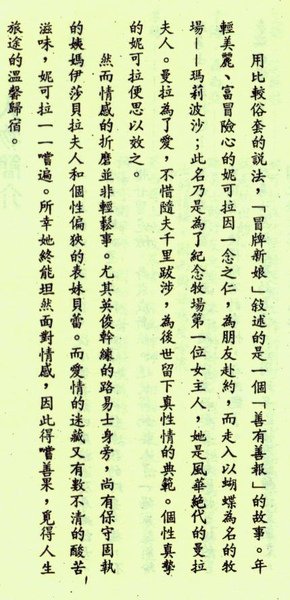 用比較俗套的說法，「冒牌新娘」敍述的是一個「善有善報」的故事。年
輕美麗、富冒險心的妮可拉因一念之仁，為朋友赴約，而走入以蝴蝶為名的牧
場——瑪莉波沙；此名乃是為了紀念牧場第一位女主人，她是風華絕代的曼拉
夫人。曼拉為了愛，不惜隨夫千里跋涉，為後世留下真性情的典範。個性真摯
的妮可拉便思以效之。
然而情感的折磨並非輕鬆事。尤其英俊幹練的路易士身旁，尚有保守固執
的姨媽伊莎貝拉夫人和個性偏狹的表妹貝蕾。而愛情的迷藏又有數不清的酸苦
滋味，妮可拉一一嚐遍。所幸她終能坦然面對情感，因此得嚐善果，覓得人生
旅途的溫馨歸宿。